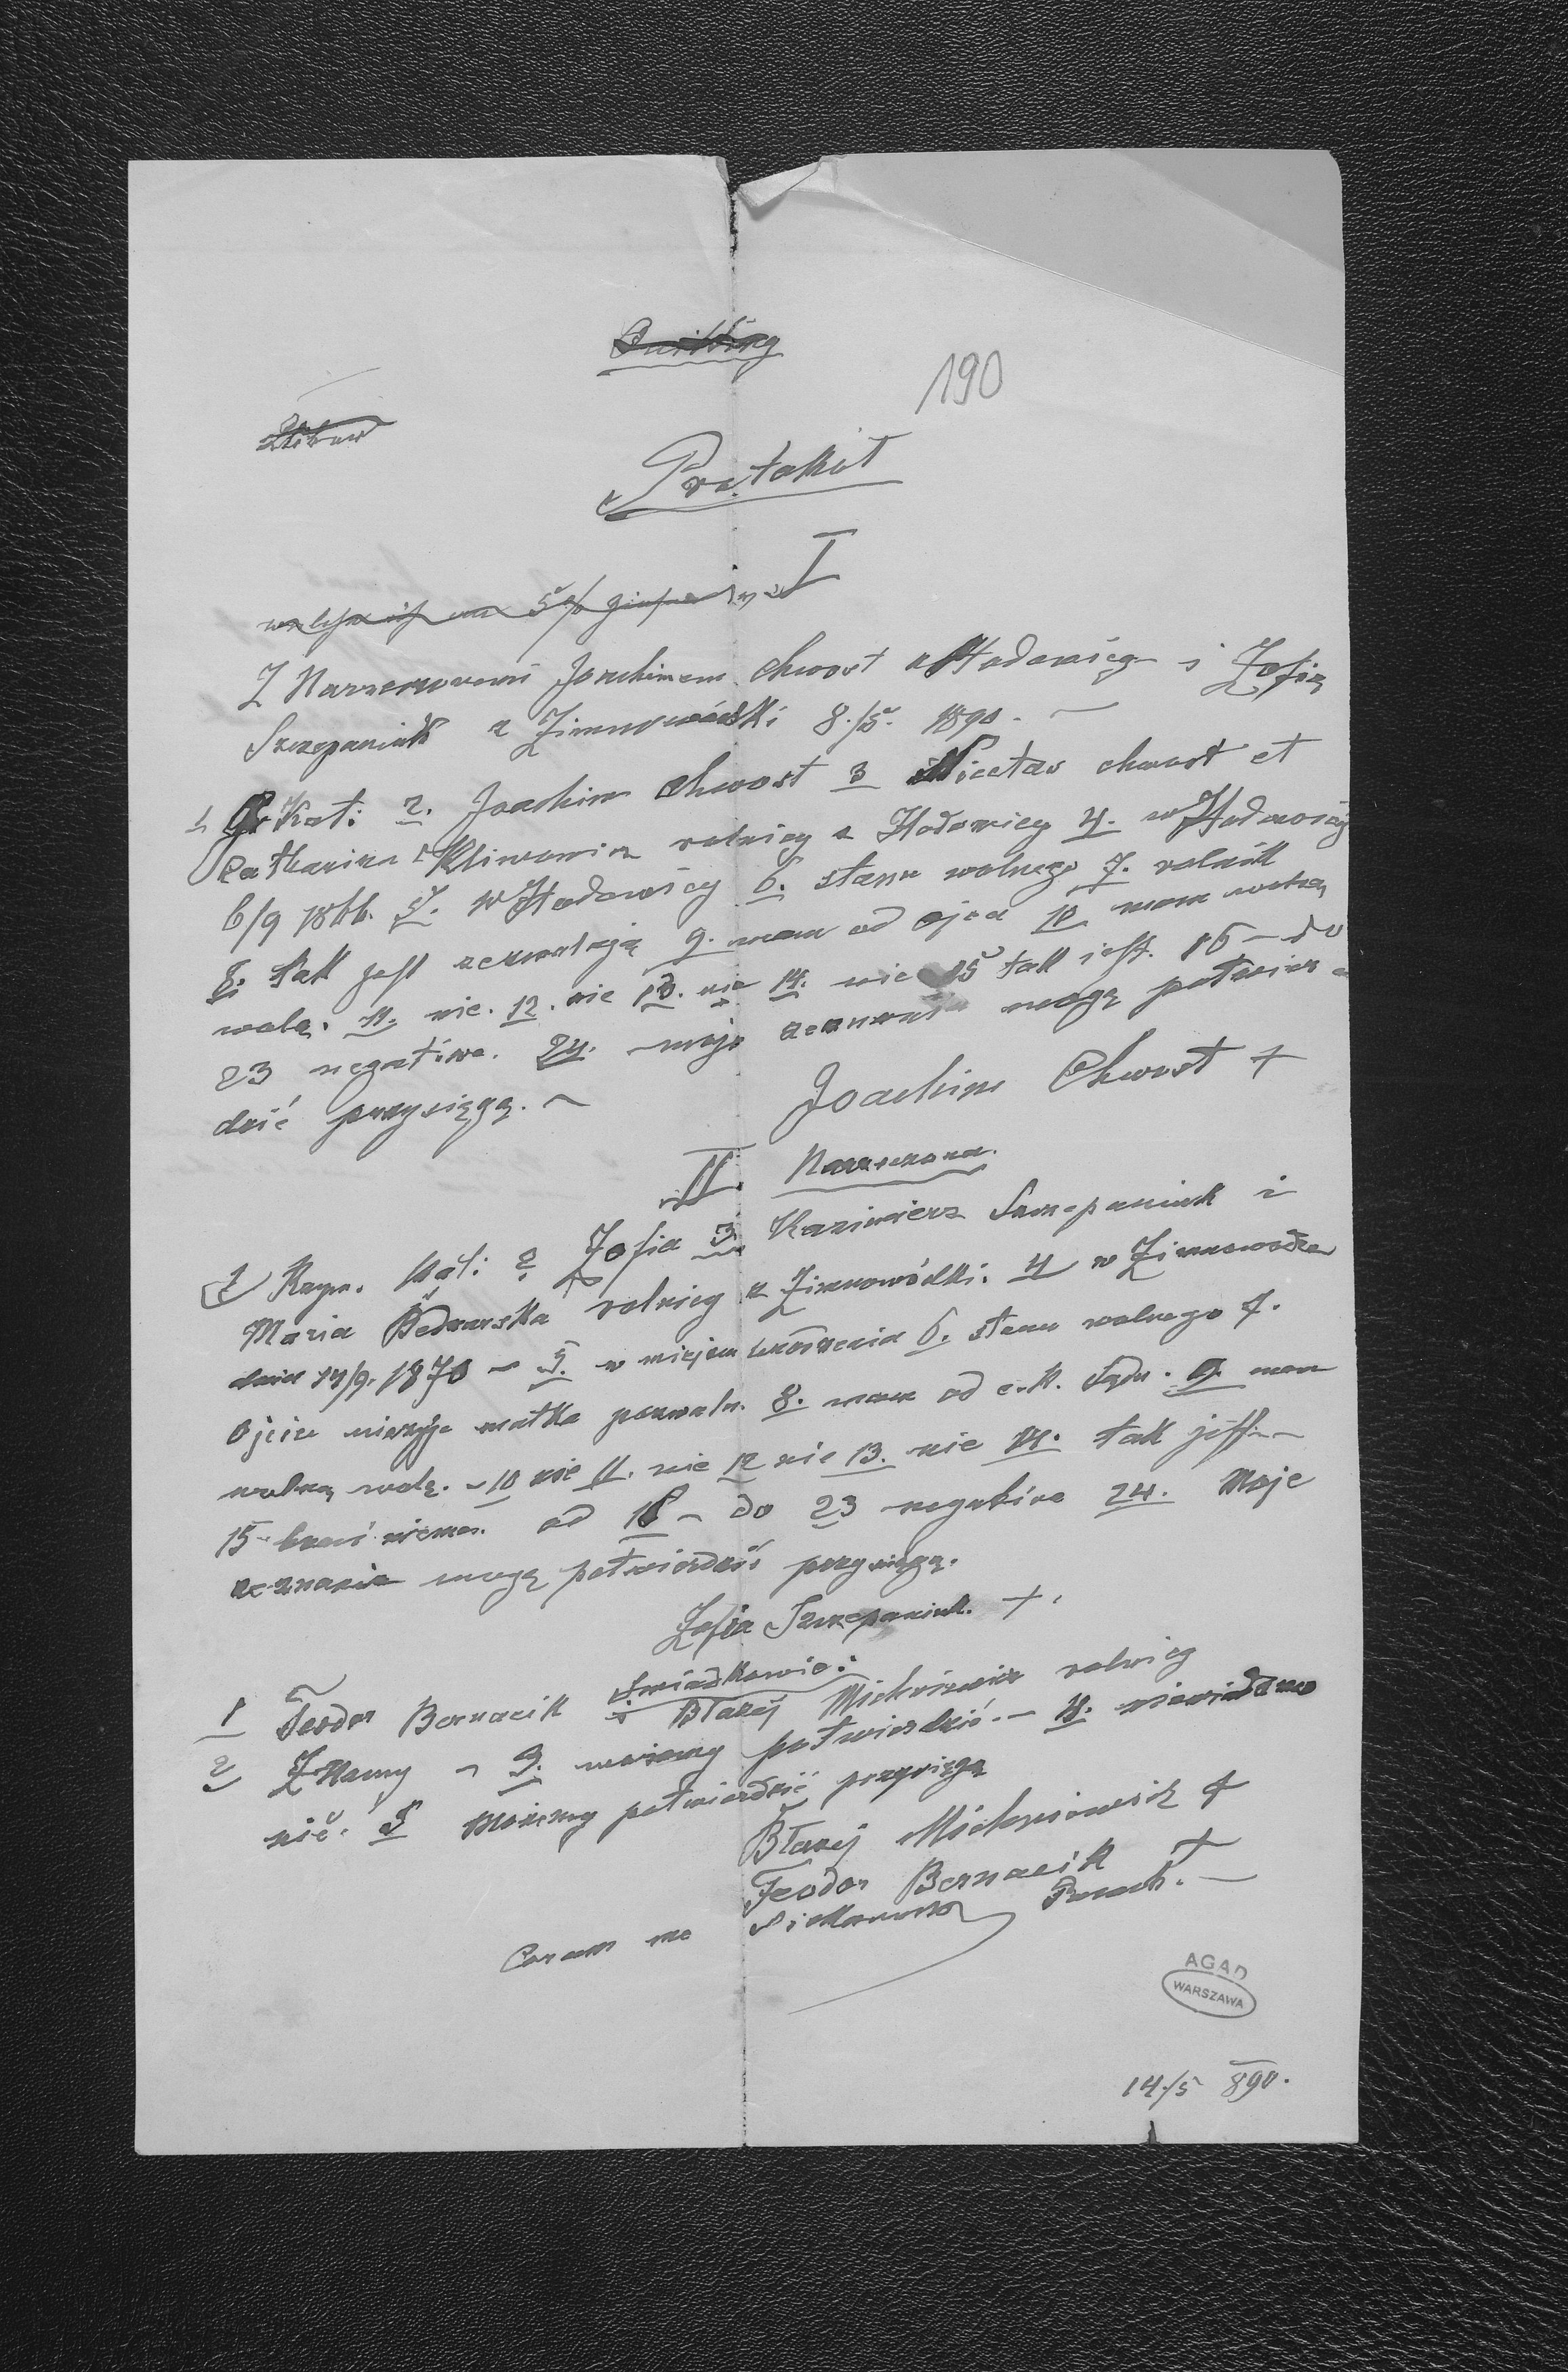 190
Protokół
I
Z Narzeczonemi Joachimem Chwost z Hodowicy i Zofią
Szczepaniak z Zimnowódki 8./5. 1890. —
1. Gr Kat: 2. Joachim Chwost 3 Nicetas Chwost et
Catharina Kliwania rolnicy z Hodowicy 4. w Hodowicy
6/9 1866. 5. w Hodowicy 6. stanu wolnego 7. rolnik
8. tak jest zezwalają 9. mam od ojca 10 mam wolną
wolę. 11. nie. 12. nie 13. nie 14. nie 15 tak jest. 16 – do
23 negative. 24. moje zeznania mogę potwier
dzić przysięgą. —
Joachim Chwost +
II. Narzeczona.
1 Rzym. Kat: 2 Zofia 3. Kazimierz Szczepaniak i
Maria Bednarska rolnicy z Zimnowódki. 4 w Zimnowódce
dnia 14/9. 1870 – 5. w miejscu urodzenia 6. stanu wolnego 7.
Ojciec nieżyje matka pozwala. 8. mam od c.k. Sądu. 9. mam
wolną wolę. – 10 nie 11. nie 12 nie 13. nie 14. tak jest. –
15 – niema. od 16 – do 23 negative 24. Moje
zeznania mogę potwierdzić przysięgą.
Zofia Szczepaniak. +
Świadkowie:
1 Teodor Bernacik Błażej rolnicy
2 Znamy – 3. możemy potwierdzić. – 4. niewiadomo
nič. 5 Możemy potwierdzić przysięgą
Błażej +
Feodor Bernacik +
Coram me Paroch. —
AGAD
WARSZAWA
14./5 890.